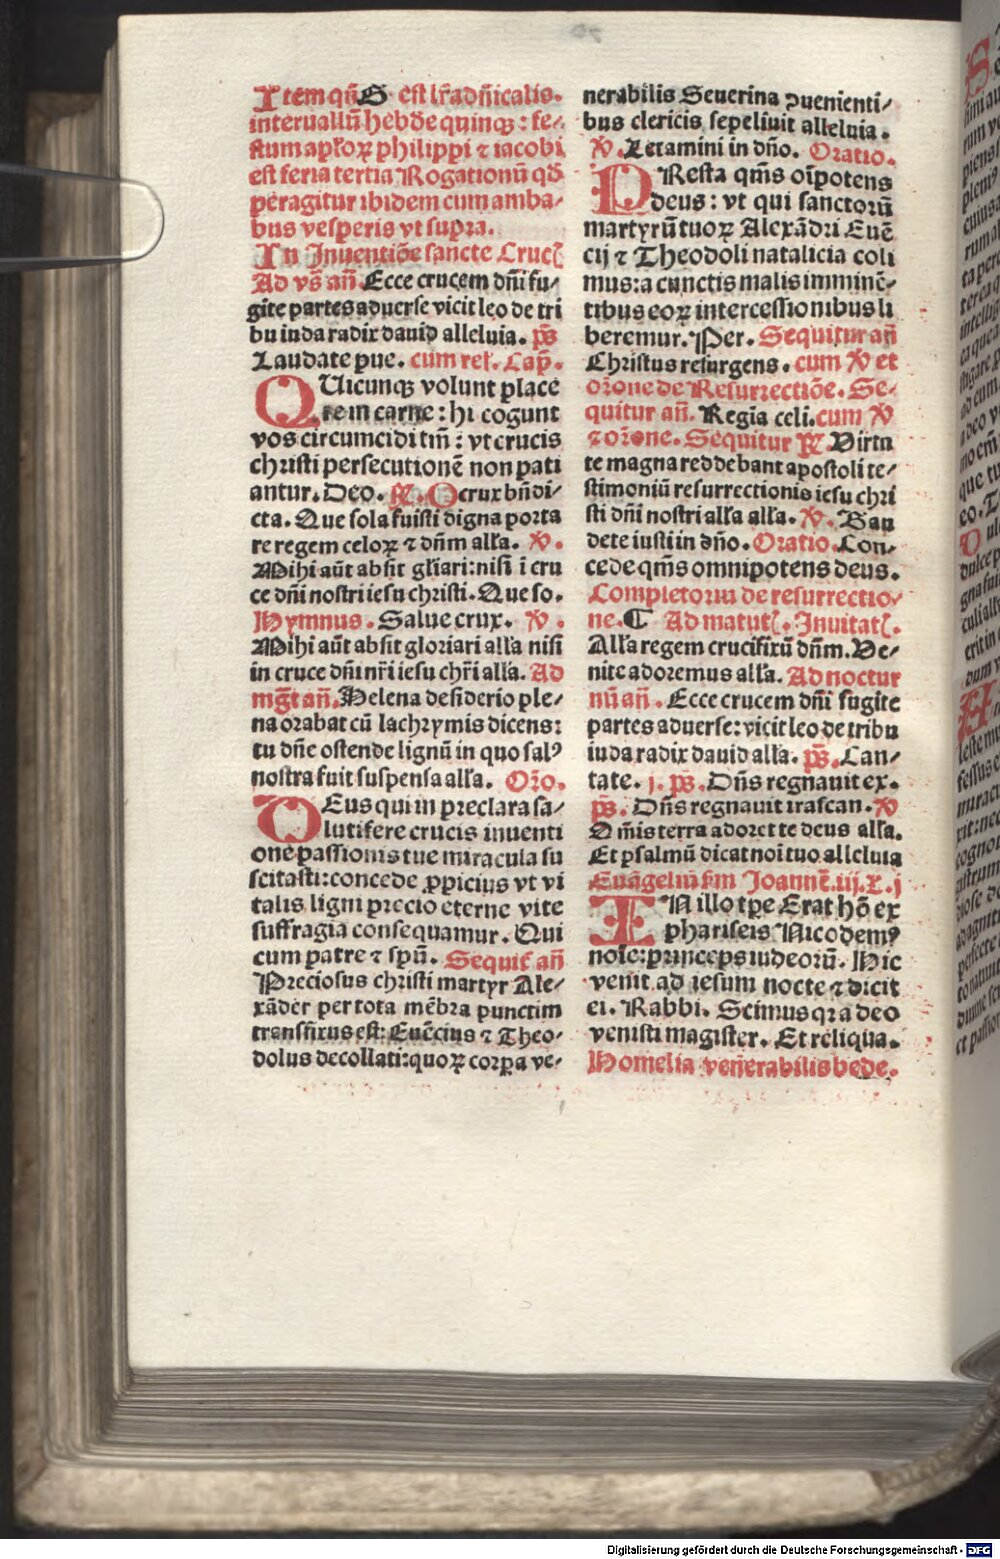 Item qñ G est lr̄a dñicalis.
interuallū hebde quinqȝ : fe⸗
stum apłoꝝ philippi ⁊ iacobi
est feria tertia Rogationū qd̄
peragitur ibidem cum amba⸗
bus vesperis vt supra.
In Inuentiōe sancte Cruc̄
Ad vs̄ añ. Ecce crucem dñi fu⸗
gite partes aduerse vicit leo de tri
bu iuda radix dauid alleluia. p̄s
Laudate pue. cum rel̄. Cap̄.
QUicunqȝ volunt place
re in carne : hi cogunt
vos circumcidi tm̄ : vt crucis
christi persecutionē non pati
antur. Deo. ℟. O crux bñdi⸗
cta. Que sola fuisti digna porta
re regem celoꝝ ⁊ dñm alła. ℣.
Mihi aūt absit głiari: nisi ī cru
ce dñi nostri iesu christi. Que so.
Hymnus. Salue crux. ℣.
Mihi aūt absit gloriari alła nisi
in cruce dñi nr̄i iesu chr̄i alła. Ad
mg̅t añ. Helena desiderio ple⸗
na orabat cū lachrymis dicens:
tu dñe ostende lignū in quo salꝰ
nostra fuit suspensa alła. Or̄o.
DEus qui in preclara sa⸗
lutifere crucis inuenti
one passionis tue miracula su
scitasti: concede ꝓpicius vt vi
talis ligni precio eterne vite
suffragia consequamur. Qui
cum patre ⁊ spū. Sequit̄ añ
Preciosus christi martyr Ale⸗
xāder per tota mēbra punctim
transfixus est: Euēcius ⁊ Theo⸗
dolus decollati: quoꝝ corpa ve⸗
nerabilis Seuerina ꝯuenienti⸗
bus clericis sepeliuit alleluia.
℣. Letamini in dño. Oratio.
PResta qm̄s oīpotens
deus : vt qui sanctorū
martyrū tuoꝝ Alexādri Euē
cij ⁊ Theodoli natalicia coli
mus: a cunctis malis imminē⸗
tibus eoꝝ intercessionibus li
beremur. Per. Sequitur añ
Christus resurgens. cum ℣ et
or̄one de Resurrectiōe. Se⸗
quitur añ. Regia celi. cum ℣
⁊ or̄one. Sequitur ℟. Virtu
te magna reddebant apostoli te⸗
stimoniū resurrectionis iesu chri
sti dñi nostri alła alła. ℣. Gau
dete iusti in dño. Oratio. Con⸗
cede qm̄s omnipotens deus.
Completoriū de resurrectio⸗
ne. ¶ Ad matut̄. Inuitat̄.
Alła regem crucifixū dñm. Ve⸗
nite adoremus alła. Ad noctur
nū añ. Ecce crucem dñi fugite
partes aduerse: vicit leo de tribu
iuda radix dauid alła. p̄s. Can⸗
tate. j. p̄s. Dñs regnauit ex.
p̄s. Dñs regnauit irascan. ℣
Om̄is terra adoret te deus alła.
Et psalmū dicat noī tuo alleluia
Euāgeliū s̄m Joannē. iij. x. j
IN illo tp̄e Erat hō ex
phariseis Nicodemꝰ
noīe: princeps iudeorū. Hic
venit ad iesum nocte ⁊ dicit
ei. Rabbi. Scimus qꝛ a deo
venisti magister. Et reliqua.
Homelia venerabilis bede.
Digitalisierung gefördert durch die Deutsche Forschungsgemeinschaft - DFG